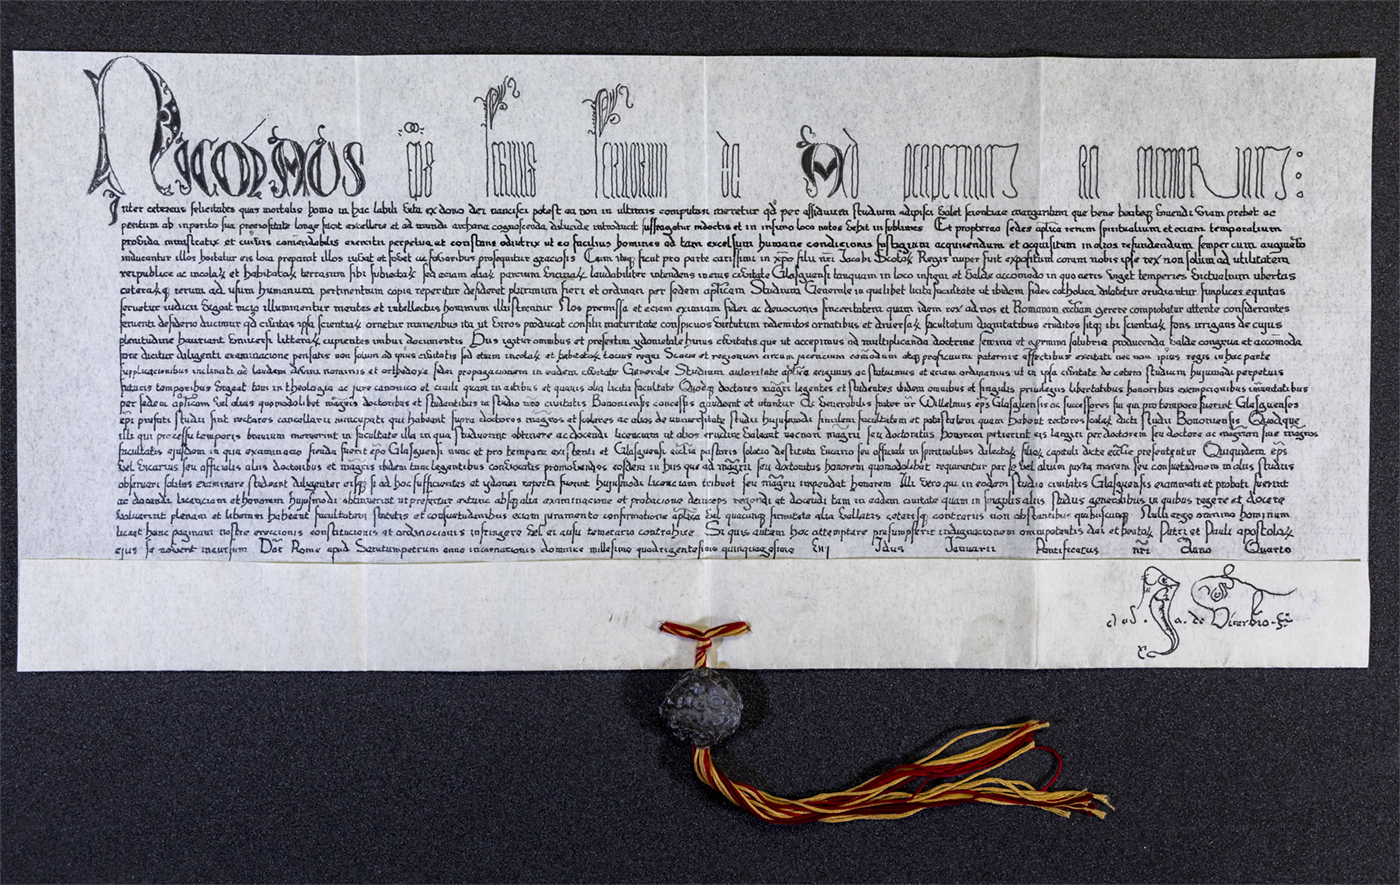 Nicolaus eps servus servorum dei Ad perpetuam rei memoriam:
Inter ceteras felicitates quas mortalis homo in hac labili vita ex dono dei nancisci potest ea non in ultimis computari meretur qd per assiduum studium adipisci valet scientiae margaritam que bene beateq vivendi viam prebet ac
peritum ab imperito sua preciositate longe facit excellere et ad mundi archana cognoscenda dilucide introducit suffragatur indoctis et in infimo loco natos vehit in sublimes Et propterea sedes aplica rerum spiritualium et eciam temporalium
provida ministratrix et cuiusvis comendabilis exercitii perpetua et constans adiutrix ut eo facilius homines ad tam excelsum humane condicionis fastigium acquirendum et acquisitum in alios refundendum semper cum augmento
inducantur illos hortatur eis loca preparat illos iuvat et fovet ac favoribus prosequitur graciosis Cum itaq sicut pro parte carissimi in xpo filii nri Jacobi Scotoz Regis nuper fuit expositum coram nobis ipse rex non solum ad utilitatem
reipublice ac incolaz et habitatoz terrarum sibi subiectaz sed eciam aliaz parcium vicinaz laudabiliter intendens in eius civitate Glasguensi tanquam in loco insigni et valde accomodo in quo aeris viget temperies victualium ubertas
ceteraq rerum ad usum humanum pertinentium copia reperitur desideret plurimum fieri et ordinari per sedem aplicam Studium Generale in qualibet licita facultate ut ibidem fides catholica dilatetur erudiantur simplices equitas
servetur iudicii vigeat racio illuminentur mentes et intellectus hominum illustrentur Nos premissa et eciam eximiam fidei ac devocionis sinceritatem quam idem rex ad nos et Romanam eccliam gerere comprobatur attente considerantes
ferventi desiderio ducimur qd civitas ipsa scientiaz ornetur muneribus ita ut viros producat consilii maturitate conspicuos virtutum redimitos ornatibus et diversaz facultatum dignitatibus eruditos sitq ibi scientiaz fons irriguus de cujus
plenitudine hauriant universi litteraz cupientes imbui documentis Hiis igitur omnibus et presertim ydoneitate huius civitatis que ut accepimus ad multiplicanda doctrine semina et germina salubria producenda valde congrua et accomoda
fore dicitur diligenti examinacione pensatis non solum ad ipius civitatis sed etiam incolaz et habitatoz tocius regni Scocie et regionum circum jacencium comodum atq proficuum paternis affectibus excitati nec non ipius regis in hac parte
supplicacionibus inclinati ad laudem divini nominis et orthodoxe fidei propagacionem in eadem civitate Generale Studium autoritate aplica erigimus ac statuimus et eciam ordinamus ut in ipsa civitate de cetero studium hujusmodi perpetuis
futuris temporibus vigeat tam in theologia ac jure canonico et civili quam in artibus et quavis alia licita facultate Quodq doctores magri legentes et studentes ibidem omnibus et singulis privilegiis libertatibus honoribus exempcionibus immunitatibus
per sedem aplicam vel alias quomodolibet magris doctoribus et studentibus in studio nro civitatis Bononiensis concessis gaudeant et utantur Ac venerabilis frater nr Willelmus eps Glasguensis ac successores sui qui pro tempore fuerint Glasguenses
epi prefati studii sint rectores cancellarii nuncupati qui habeant supra doctores magros et scolares ac alios de universitate studii hujusmodi similem facultatem et potestatem quam habent rectores scolaz dicti studii Bononiensis Quodque
illi qui processu temporis bravium meruerint in facultate illa in qua studuerint obtinere ac docendi licenciam ut alios erudire valeant necnon magrii seu doctoratus honorem petierint eis largiri per doctorem seu doctores ac magrum sive magros
facultatis ejusdem in qua examinacio fienda fuerit epo Glasguensi nunc et pro tempore existenti et Glasguensi ecclia pastoris solacio destituta vicario seu officiali in spiritualibus dilectoz filioz capituli dicte ecclie presentetur Quiquidem eps
vel vicarius seu officialis aliis doctoribus et magris ibidem tunc legentibus convocatis promovendos eosdem in hiis que ad magrii seu doctoratus honorem quomodolibet requiruntur per se vel alium juxta morem seu consuetudinem in aliis studiis
observari solitos examinare studeant diligenter eisq si ad hoc sufficientes et ydonei reperti fuerint hujusmodi licenciam tribuat seu magrii impendat honorem Illi vero qui in eodem studio civitatis Glasguensis examinati et probati fuerint
ac docendi licenciam et honorem hujusmodi obtinuerint ut prefertur extunc absq alia examinacione et probacione deinceps regendi et docendi tam in eadem civitate quam in singulis aliis studiis generalibus in quibus regere et docere
voluerint plenam et liberam habeant facultatem statutis et consuetudinibus eciam juramento confirmatione aplica vel quacunq firmitate alia vallatis ceterisq contrariis non obstantibus quibuscunq Nulli ergo omnino hominum
liceat hanc paginam nostre ereccionis constitucionis et ordinacionis infringere vel ei ausu temerario contrahire Si quis autem hoc attemptare presumpserit indignacionem omnipotentis dei et beatoz Petri et Pauli apostoloz
ejus se noverit incursum Dat Rome apud Sanctumpetrum anno incarnacionis dominice millesimo quadrigentesimo quinquagesimo Vij Idus Januarii Pontificatus nri Anno Quarto
a. de Viterbio